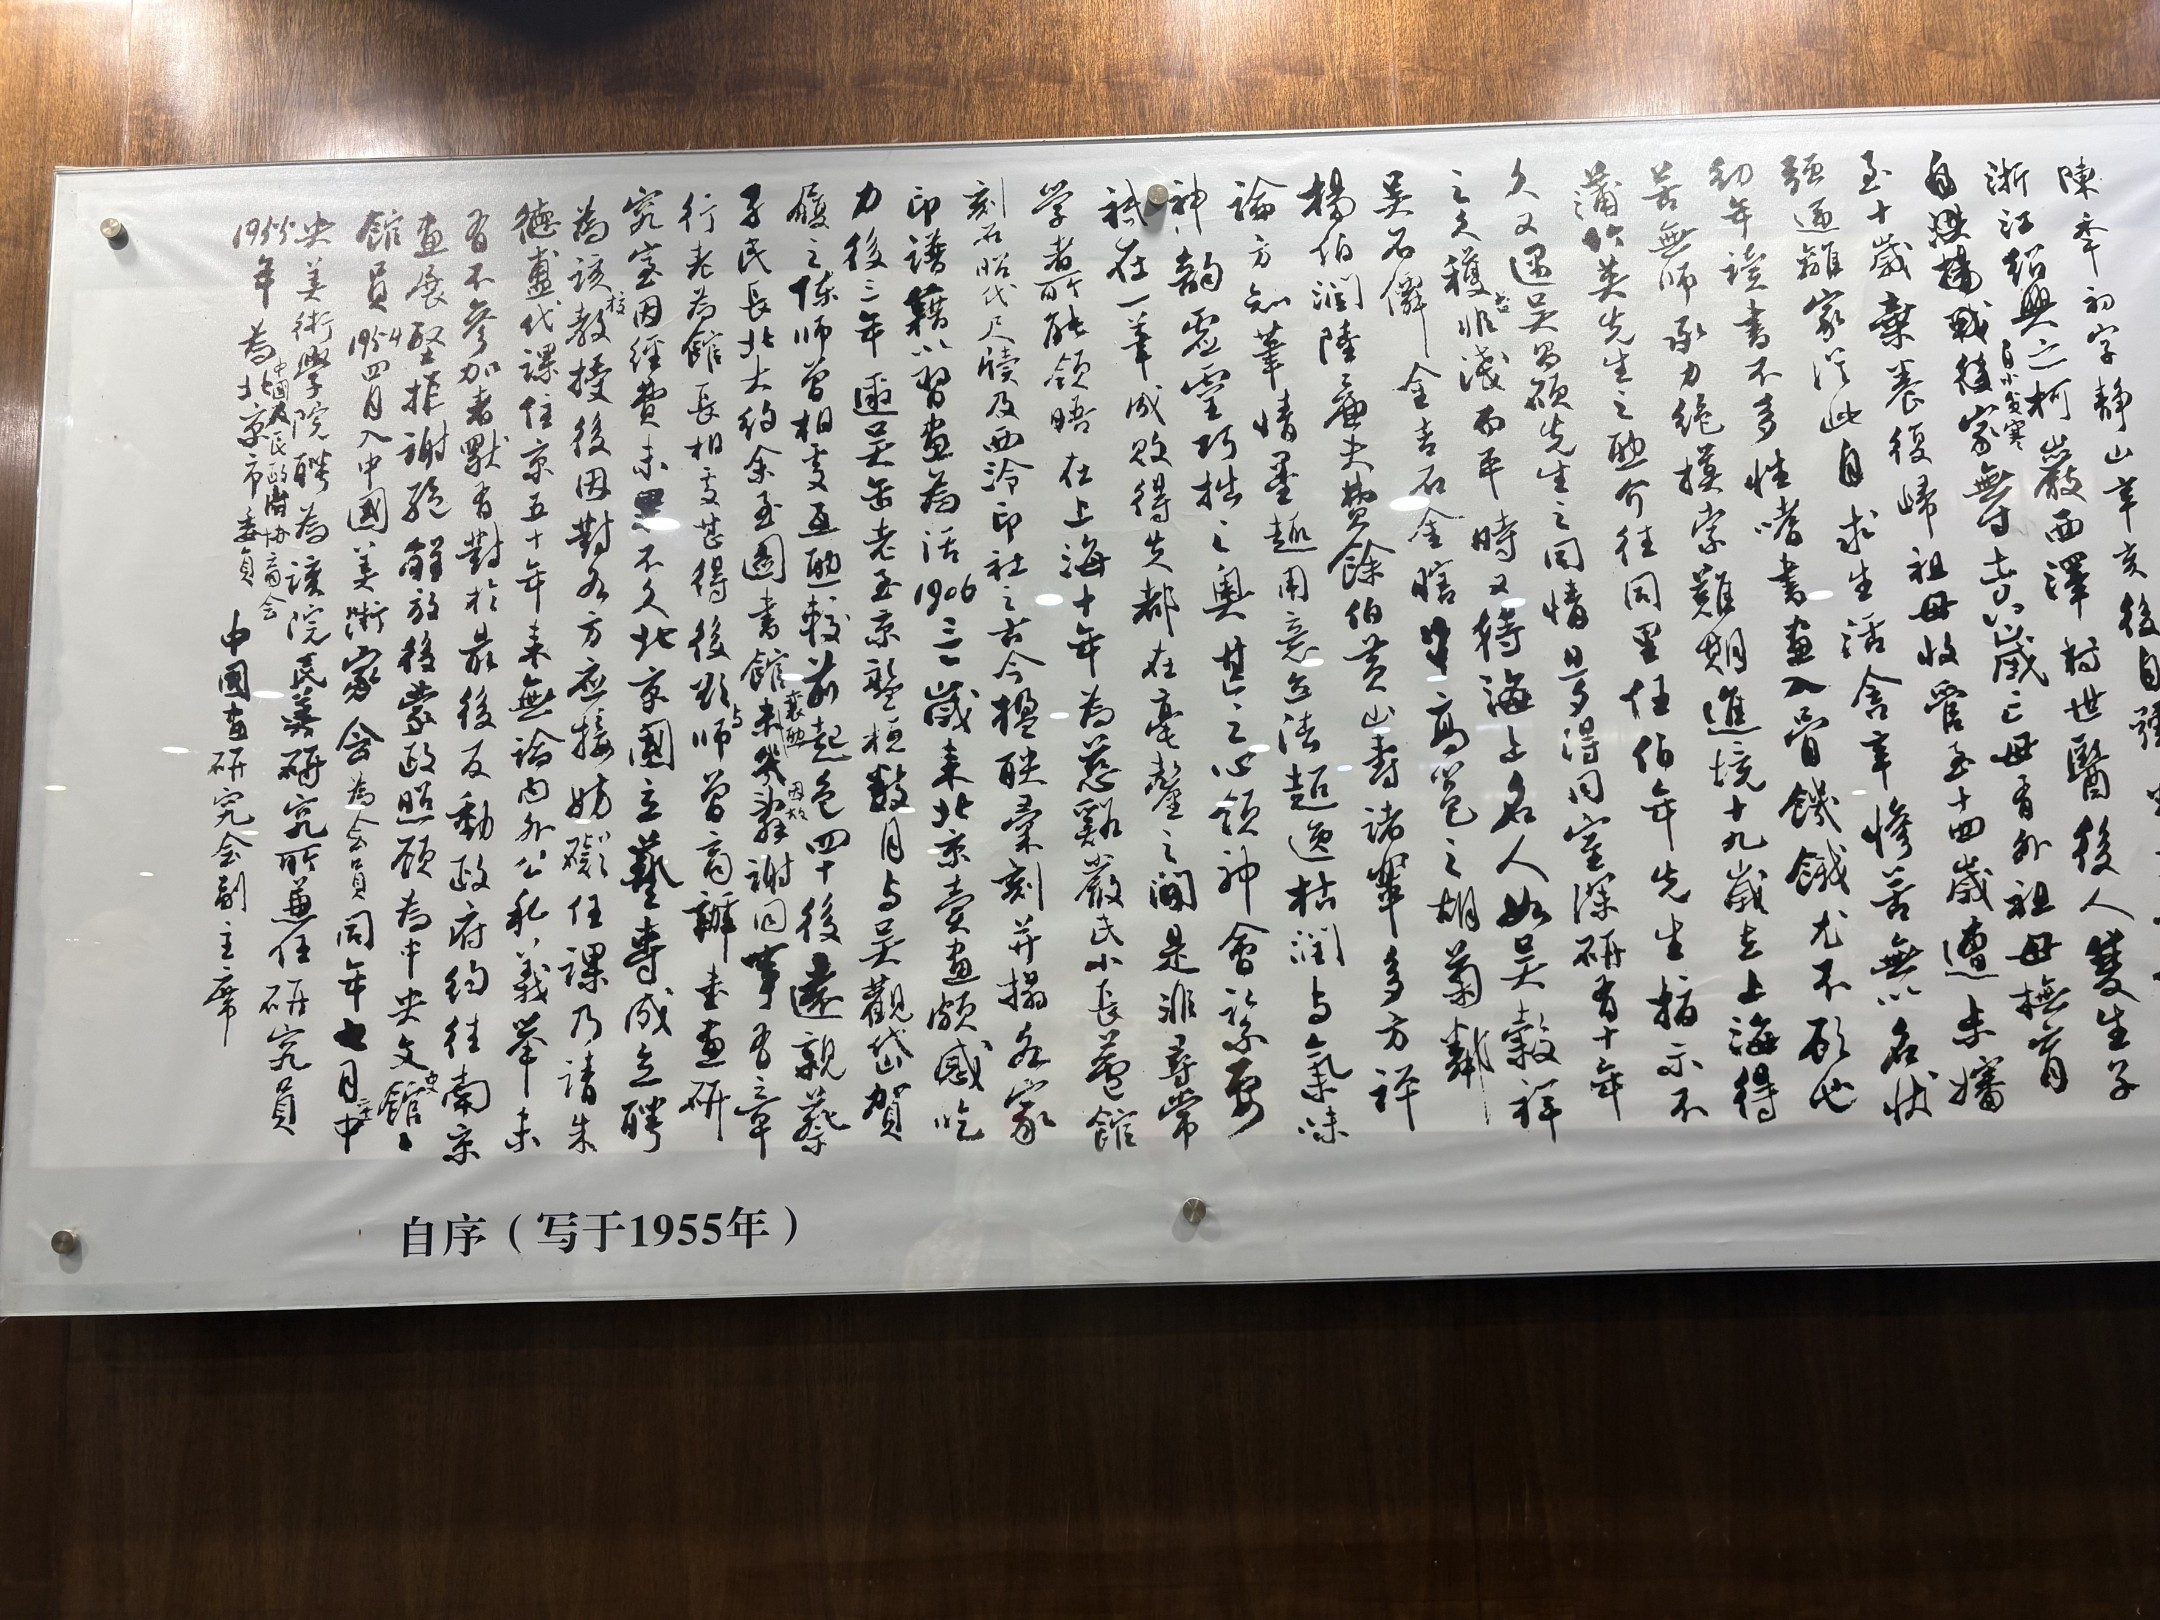 陳年初字靜山辛亥後自號
浙江紹興之柯巖西澤村世醫後人雙生子
自小貧寒
自洪楊戰後家無寸六歲亡母有外祖母撫育
至十歲棄養復歸祖母收管至十四歲遭未嬸
强逼離家從此自求生活含辛慘苦無以名狀
幼年讀書不多性嗜書畫入骨饑餓尤不顧也
苦無師承力絶摸索難期進境十九歲去上海得
蒲竹英先生之酏介往同里任伯年先生指示不
久又遇吳昌碩先生之同情且多得同室深研有十年
之久獲非淺而平時又待海上名人如吳穀祥
吳石僊金吉石金瞎牛高邕之胡菊鄰
楊伯潤陸廉夫黄山壽諸輩多方詳
論方知筆情墨趣用意筆法超逸枯潤与氣味
神韵虛靈巧拙之奥其之心領神會訟要
祇在一筆成敗得失都在毫釐之間是非尋常
学者所能領晤在上海十年為慈谿嚴氏小長蘆館
刻石昭代尺牘及西泠印社之古今楹联彙刻并搨各家
印譜藉以習畫為活1906三一歲来北京賣畫頗感吃
力後三年邀吳缶老至京盤桓數月与吳觀岱賀
履之陳師曾相支逥較前起色四十後遠親蔡
孑民長北大約余至圖書館未幾辭謝同事有章
行老為館長相支甚得後与師曾商辦書画研
究室因經費未果不久北京國立藝專成立聘
為該校教授後因對各方应接妨礙任課乃請朱
德甫代課住京五十年来無論内外公私義舉未
有不參加者獸有對於最後反動政府約往南京
画展堅拒謝絕解放後蒙政照顧為中央文史館
館員1954四月入中國美術家会為会員同年七月中
央美術學院聘為該院民族研究所兼任研究員
1955年為北京市委員 中國画研究会副主席
中國人民政協商会
自序（写于1955年）